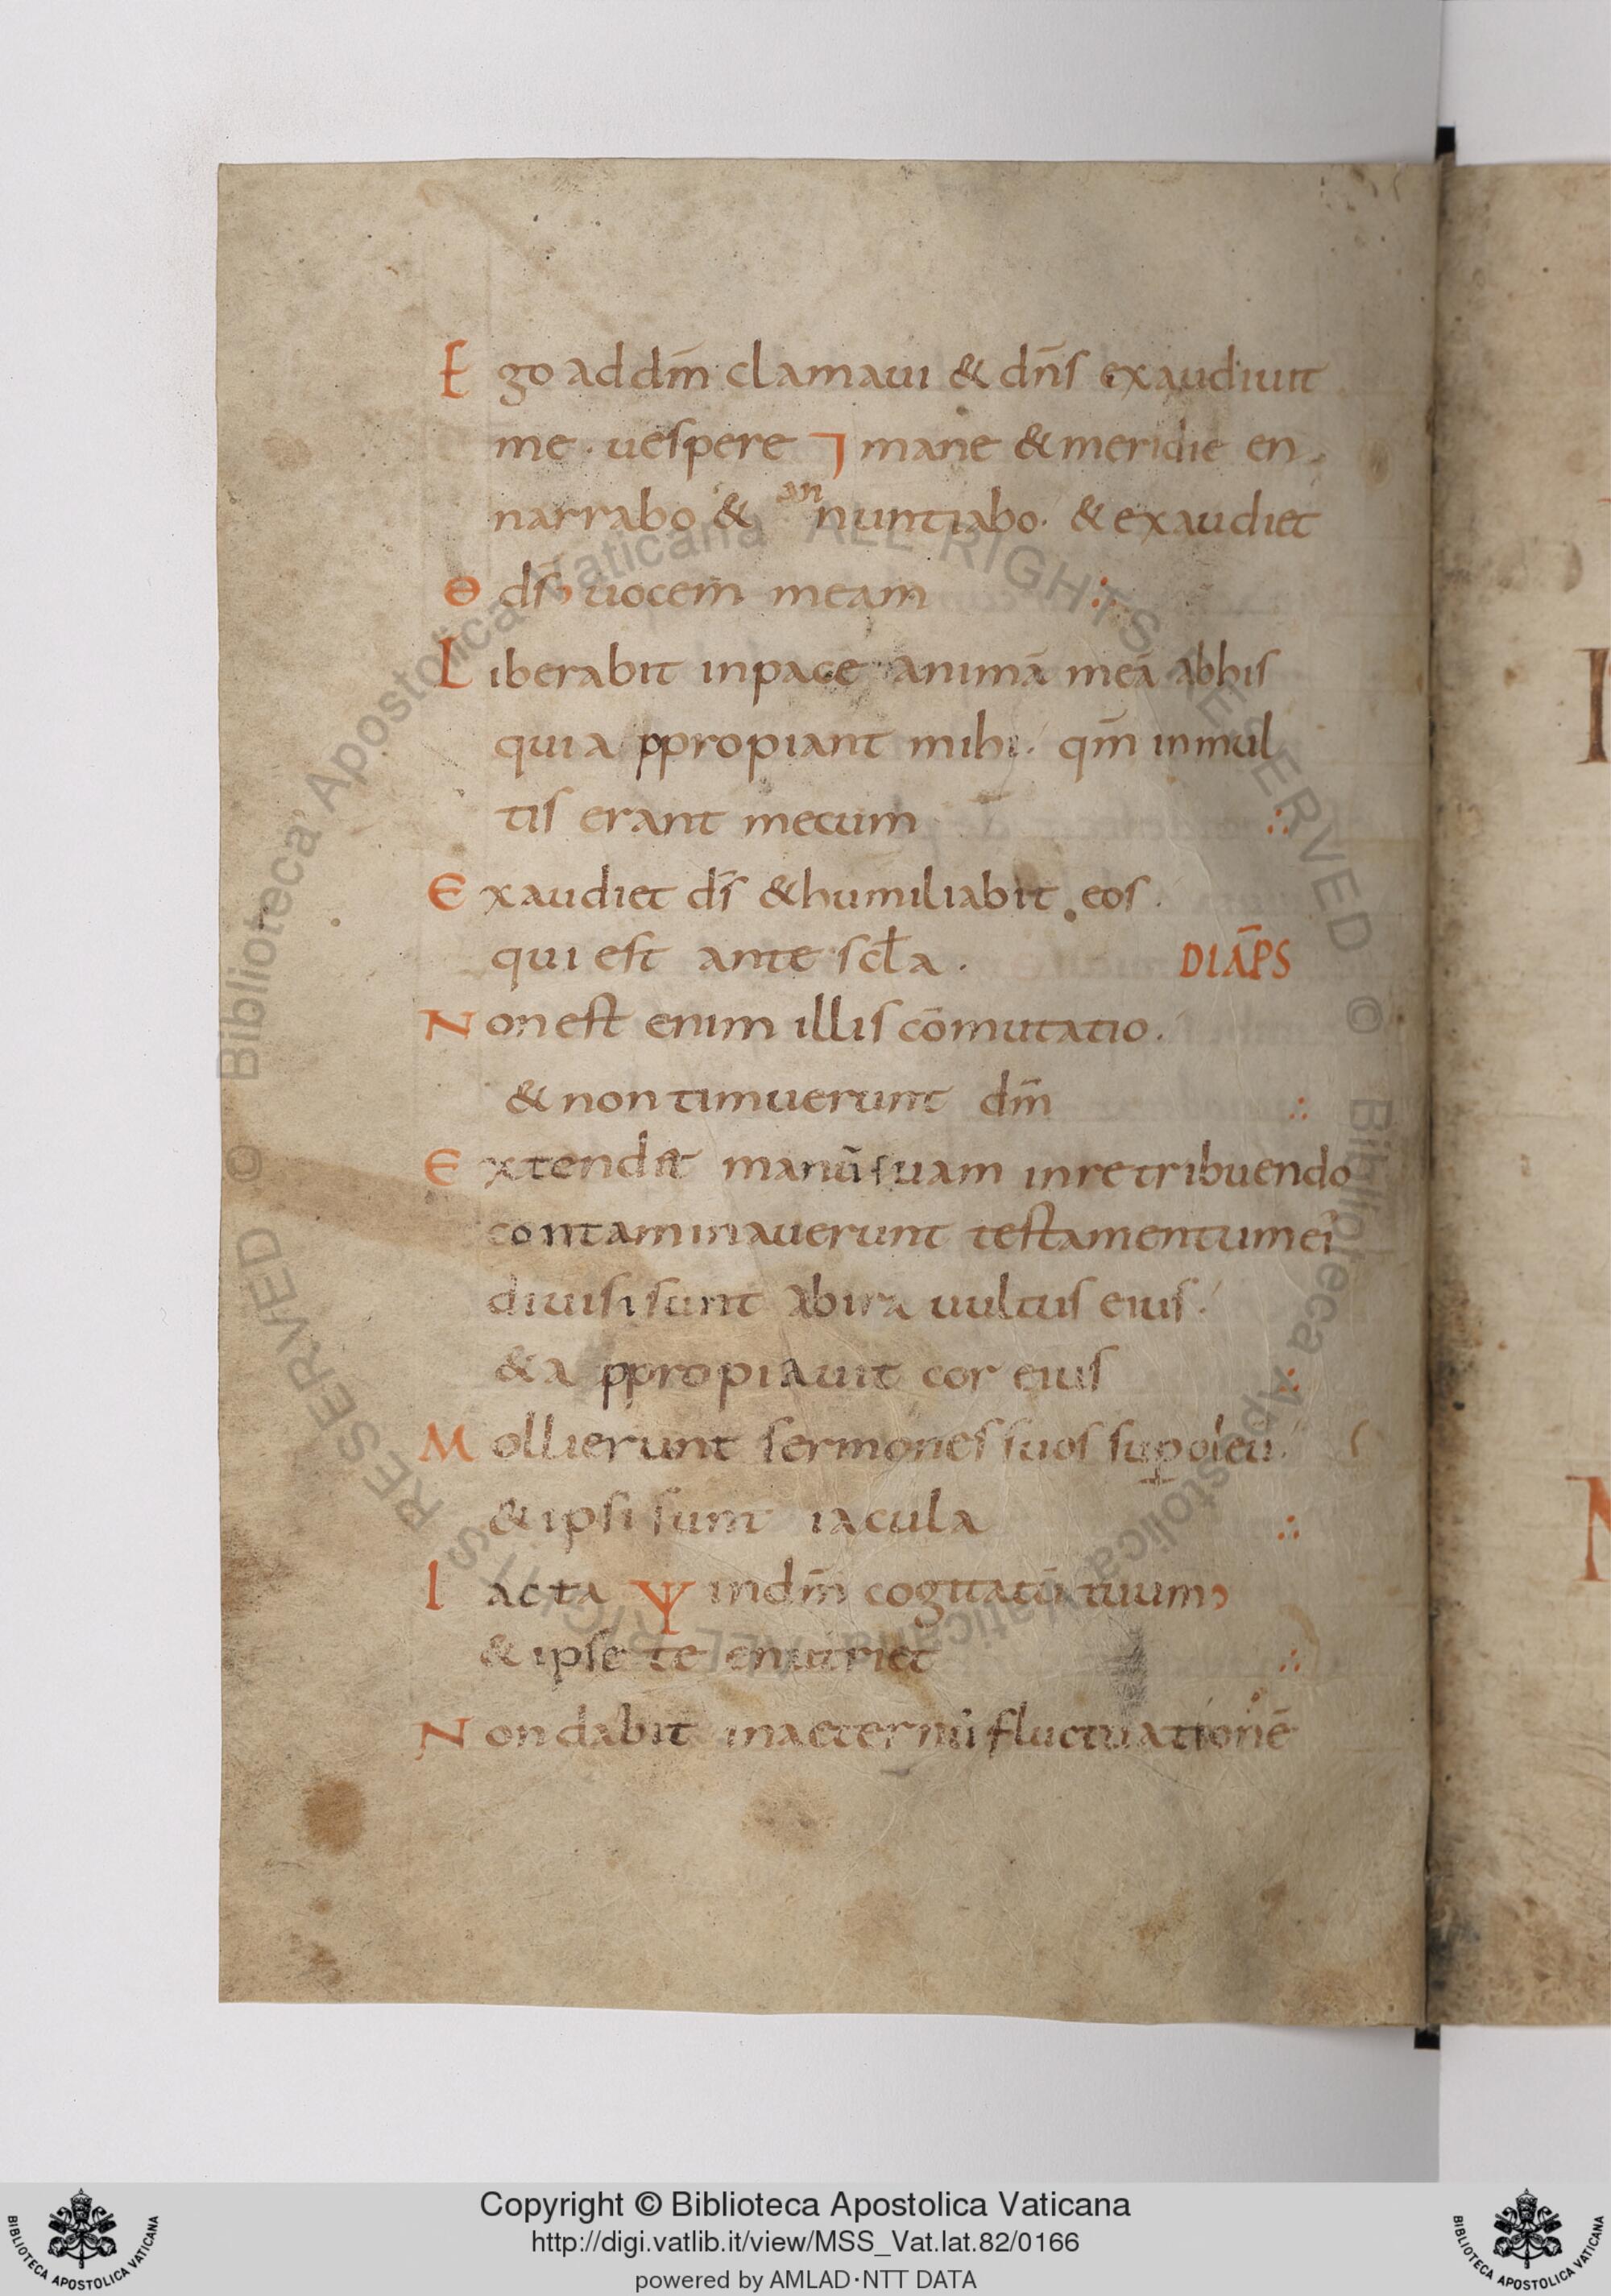 Ego ad dm̄ clamaui & dn̄s exaudiuit
me · uespere ⁊ mane & meridie en
narrabo & annuntiabo · & exaudiet
ds̄ uocem meam ∴
Liberabit in pace animā meā ab his
qui appropiant mihi · qm̄ in mul
tis erant mecum ∴
Exaudiet ds̄ & humiliabit eos ·
qui est ante scl̄a · DIĀPS
Non est enim illis cōmutatio ·
& non timuerunt dm̄ ∴
Extendit manū suam in retribuendo
contaminauerunt testamentum ei
diuisi sunt ab ira uultus eius ·
& appropiauit cor eius ∴
Mollierunt sermones suos sup oleū ·
& ipsi sunt iacula ∴
Iacta Ψ in dm̄ cogitatū tuum
& ipse te enutriet ∴
Non dabit in aeternū fluctuationē
Copyright © Biblioteca Apostolica Vaticana
http://digi.vatlib.it/view/MSS_Vat.lat.82/0166
powered by AMLAD·NTT DATA
BIBLIOTECA APOSTOLICA VATICANA
BIBLIOTECA APOSTOLICA VATICANA
© Biblioteca Apostolica Vaticana ALL RIGHTS RESERVED
© Biblioteca Apostolica Vaticana ALL RIGHTS RESERVED